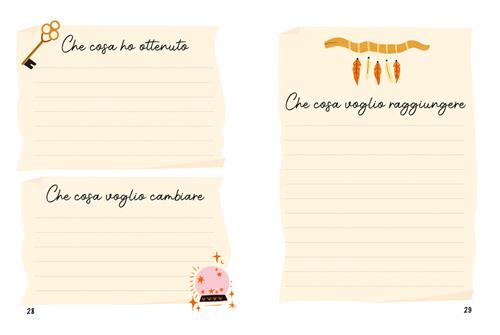 Che cosa ho ottenuto
Che cosa voglio cambiare
28
Che cosa voglio raggiungere
29